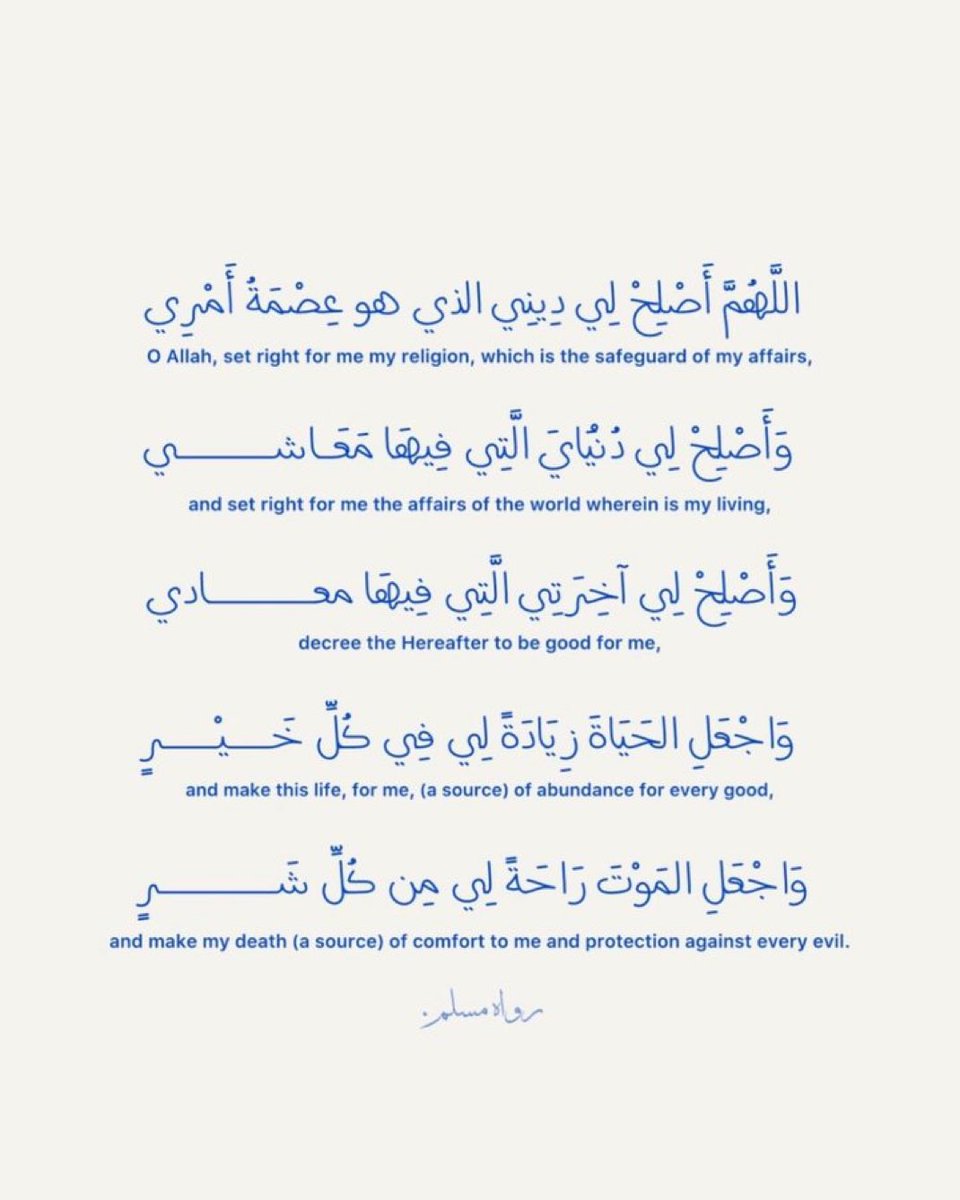 اللَّهُمَّ أَصْلِحْ لِي دِينِي الذي هو عِصْمَةُ أَمْرِي
O Allah, set right for me my religion, which is the safeguard of my affairs,
وَأَصْلِحْ لِي دُنْيَايَ الَّتِي فِيهَا مَعَـاشـــــــي
and set right for me the affairs of the world wherein is my living,
وَأَصْلِحْ لِي آخِرَتِي الَّتِي فِيهَا معـــــــادي
decree the Hereafter to be good for me,
وَاجْعَلِ الحَيَاةَ زِيَادَةً لِي فِي كُلِّ خَـــيْـــــرٍ
and make this life, for me, (a source) of abundance for every good,
وَاجْعَلِ المَوْتَ رَاحَةً لِي مِن كُلِّ شَـــــــرٍ
and make my death (a source) of comfort to me and protection against every evil.
رواه مسلم